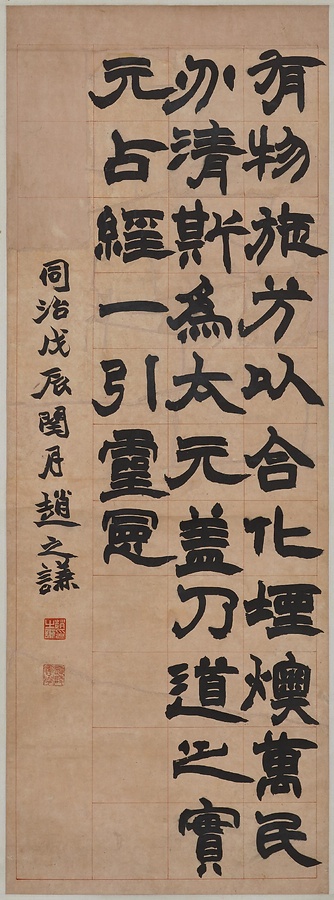 有物施以合化堙燠萬民
清斯為太元盖乃道之實
元占經一引靈憲
同治戊辰閏月趙之謙